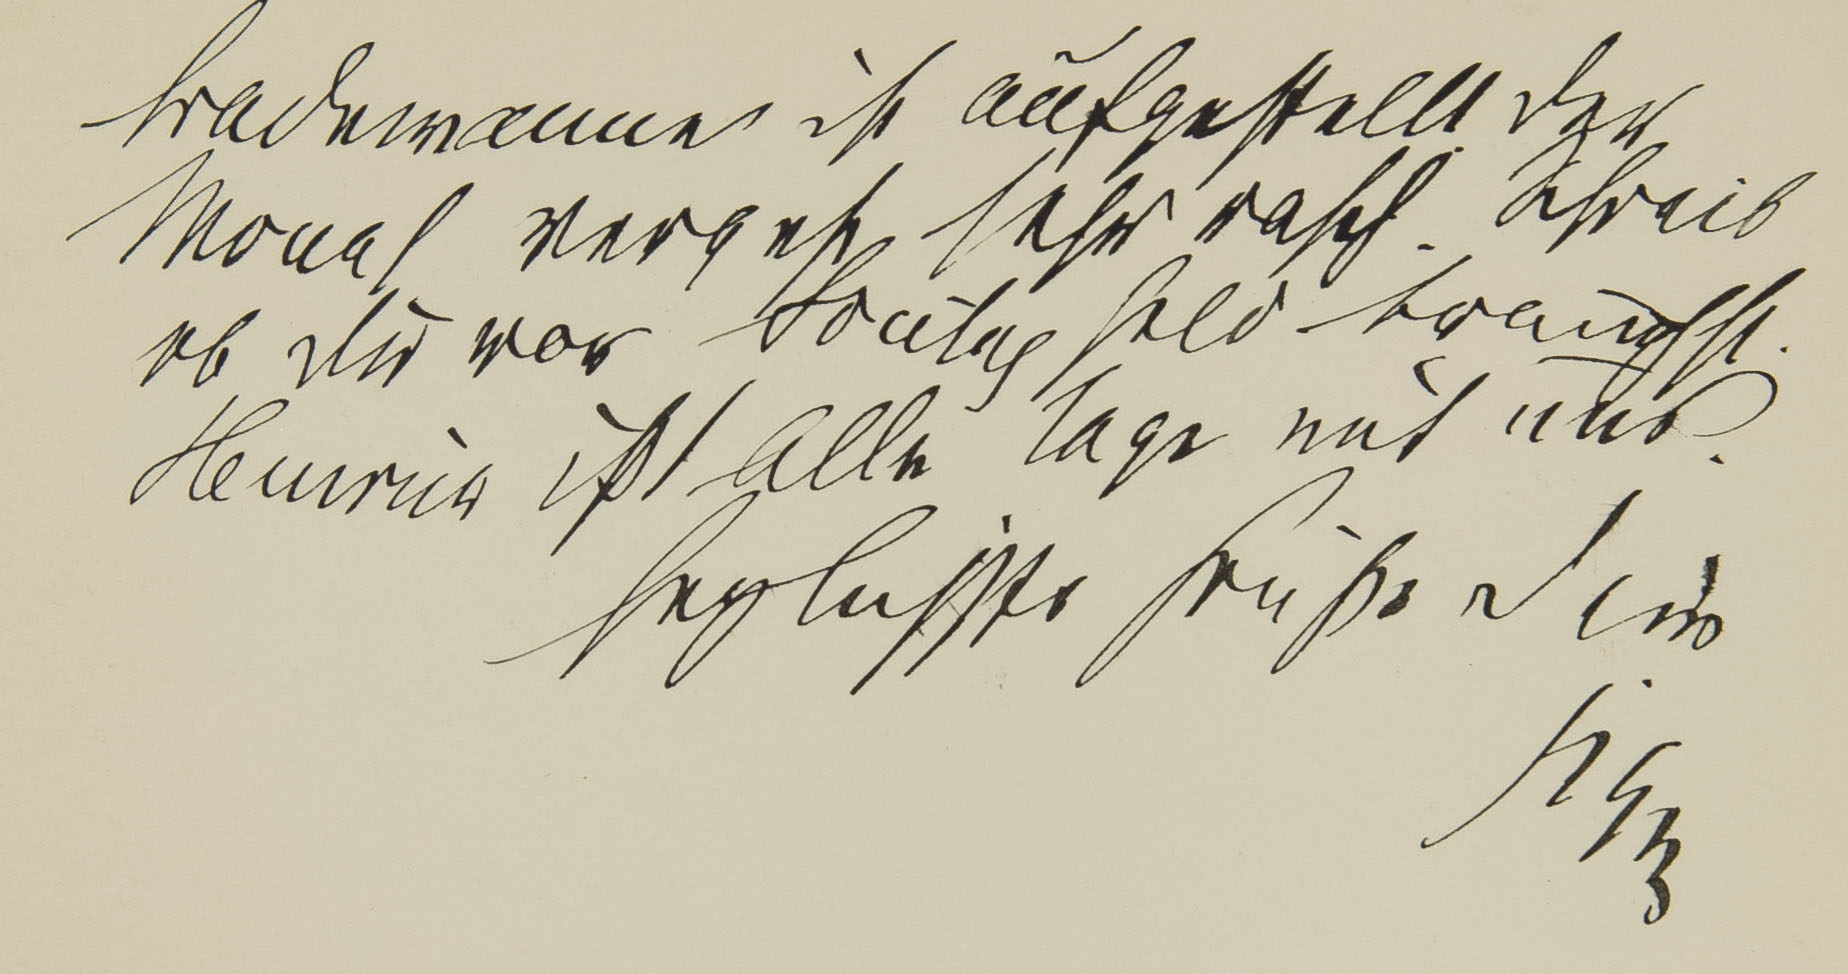 Badewanne ist aufgestellt der
Monat vergeht sehr rasch. Schreib
ob du vor Sontag Geld brauchst.
Heinrich ißt alle Tage mit uns.
herzlichste Grüße Dein